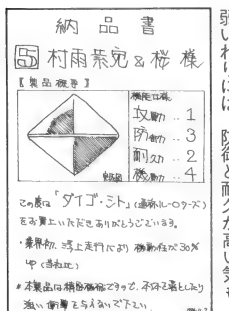 納品書
村雨紫宛&桜 様
【製品概要】
機能仕様
攻撃力 .. 1
防御力 .. 3
耐久力 .. 2
機動力 .. 4
この度は「ダイゴ・シト」
をお買上いただきありがとうございます。
・業界初、浮上走行により 機動性が30%
up (当社比)
本製品は精密機械ですので、本体を落としたり
強い衝撃を与えないで下さい
弱いわりには 防御と耐久が高い気も